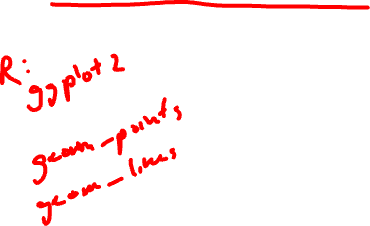 R:
ggplot2
geom-points
geom-lines